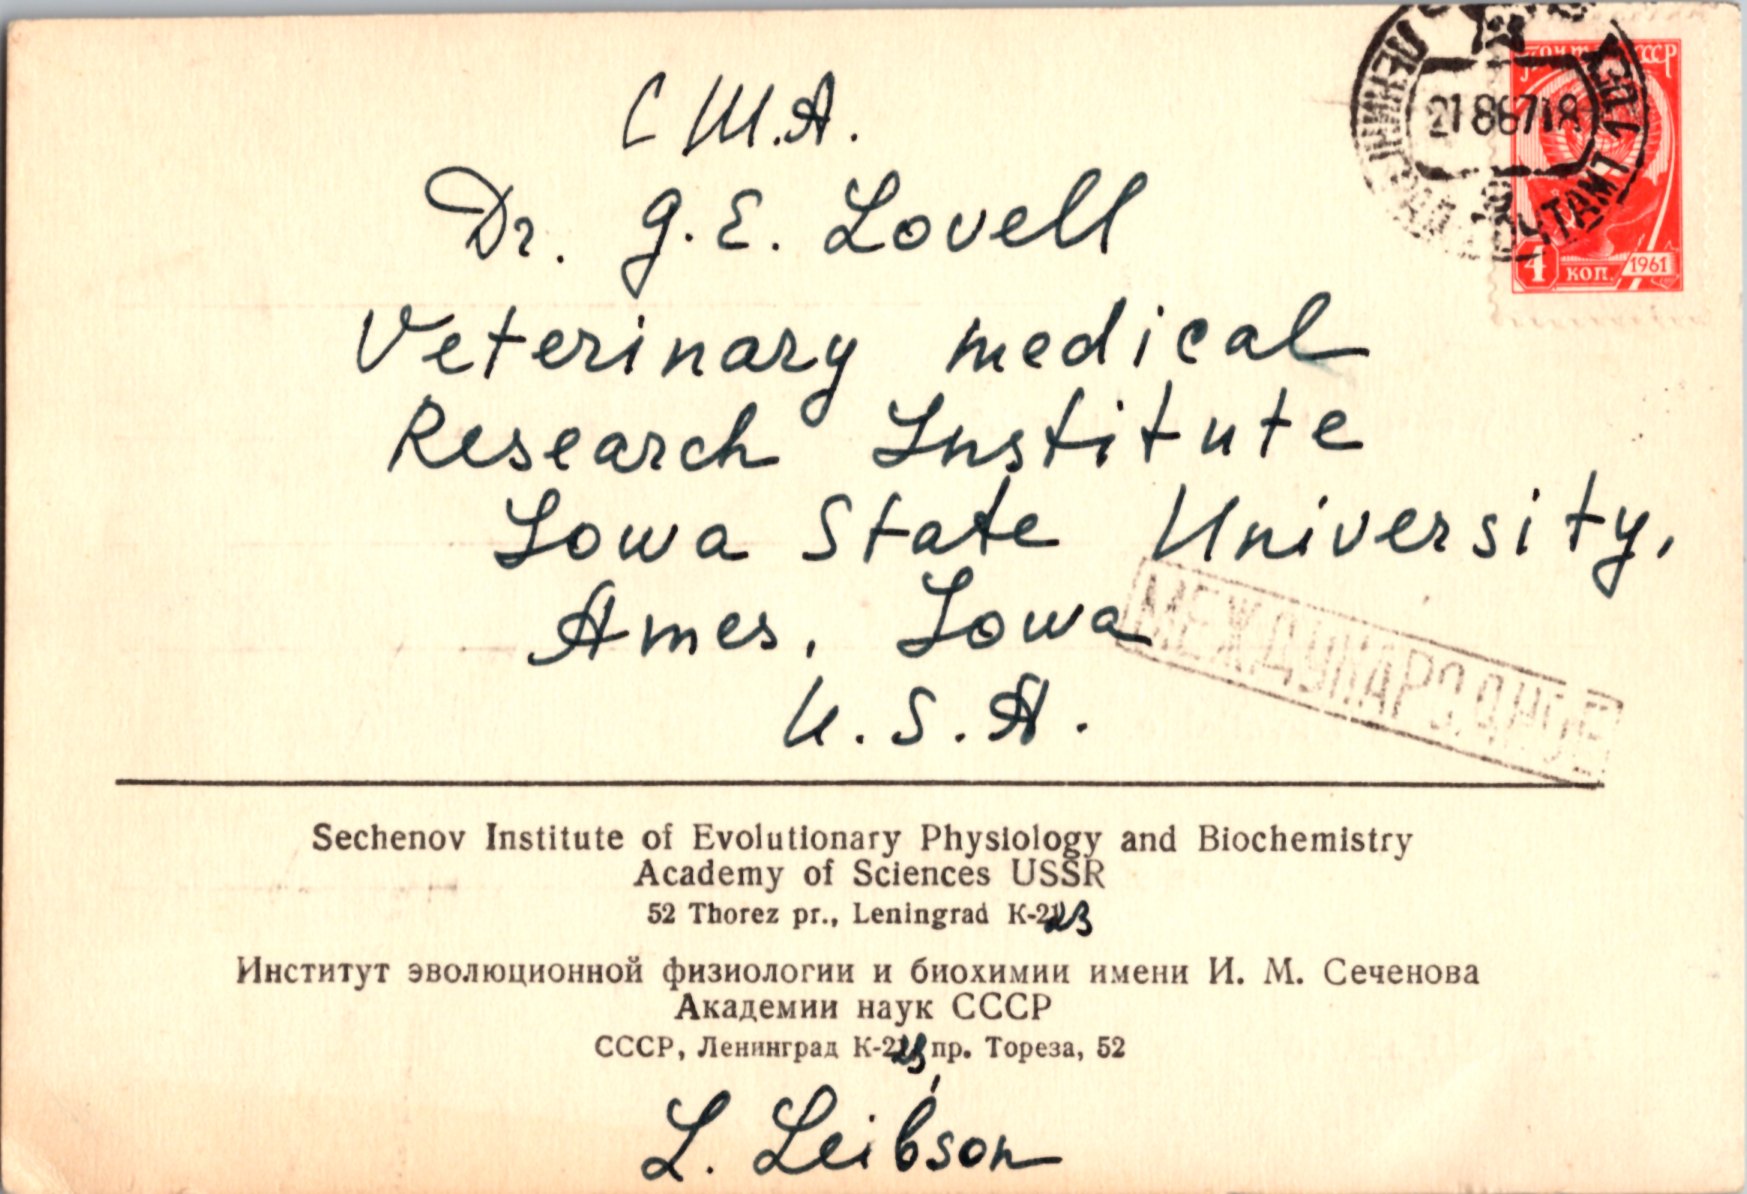 С Ш.А.
Dr. G. E. Lovell
Veterinary medical
Research Institute
Iowa State University,
Ames, Iowa
U. S. A.
ПОЧТА СССР
2186718
ПОЧТАМТ 1
4 коп. 1961
МЕЖДУНАРОДНОЕ
Sechenov Institute of Evolutionary Physiology and Biochemistry
Academy of Sciences USSR
52 Thorez pr., Leningrad K-223
Институт эволюционной физиологии и биохимии имени И. М. Сеченова
Академии наук СССР
СССР, Ленинград К-223, пр. Тореза, 52
L. Leibson